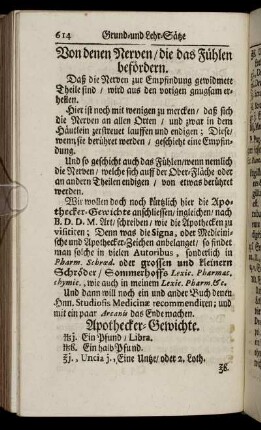 614 Grund-und Lehr-Sätze
Von denen Nerven/ die das Fühlen
befördern.
Daß die Nerven zur Empfindung gewidmete
Theile sind/ wird aus den vorigen gnugsam er-
hellen.
Hier ist noch mit wenigen zu mercken/ daß sich
die Nerven an allen Orten/ und zwar in dem
Häutlein zerstreuet lauffen und endigen; Diese/
wenn sie berühret werden/ geschieht eine Empfin-
dung.
Und so geschicht auch das Fühlen/wenn nemlich
die Nerven/ welche sich auff der Ober-Fläche oder
an andern Theilen endigen/ von etwas berühret
werden.
Wir wollen doch noch kürtzlich hier die Apo-
thecker-Gewichte anschliessen/ ingleichen/ nach
B. D. D. M. Art/ schreiben/ wie die Apothecken zu
visitiren; Denn was die Signa, oder Medicini-
sche und Apothecker-Zeichen anbelanget/ so findet
man solche in vielen Autoribus, sonderlich in
Pharm. Schræd. oder grossen und kleinern
Schröder/ Sommerhoffs Lexic. Pharmac.
chymic., wie auch in meinem Lexic. Pharm. &c.
Und dann will noch ein und ander Buch denen
Hnn. Studiosis Medicinæ recommendiren; und
mit ein paar Arcanis das Ende machen.
Apothecker-Gewichte.
℔j. Ein Pfund/ Libra.
℔ß. Ein halb Pfund.
℥j., Uncia j., Eine Untze/ oder 2. Loth.
℥ß.